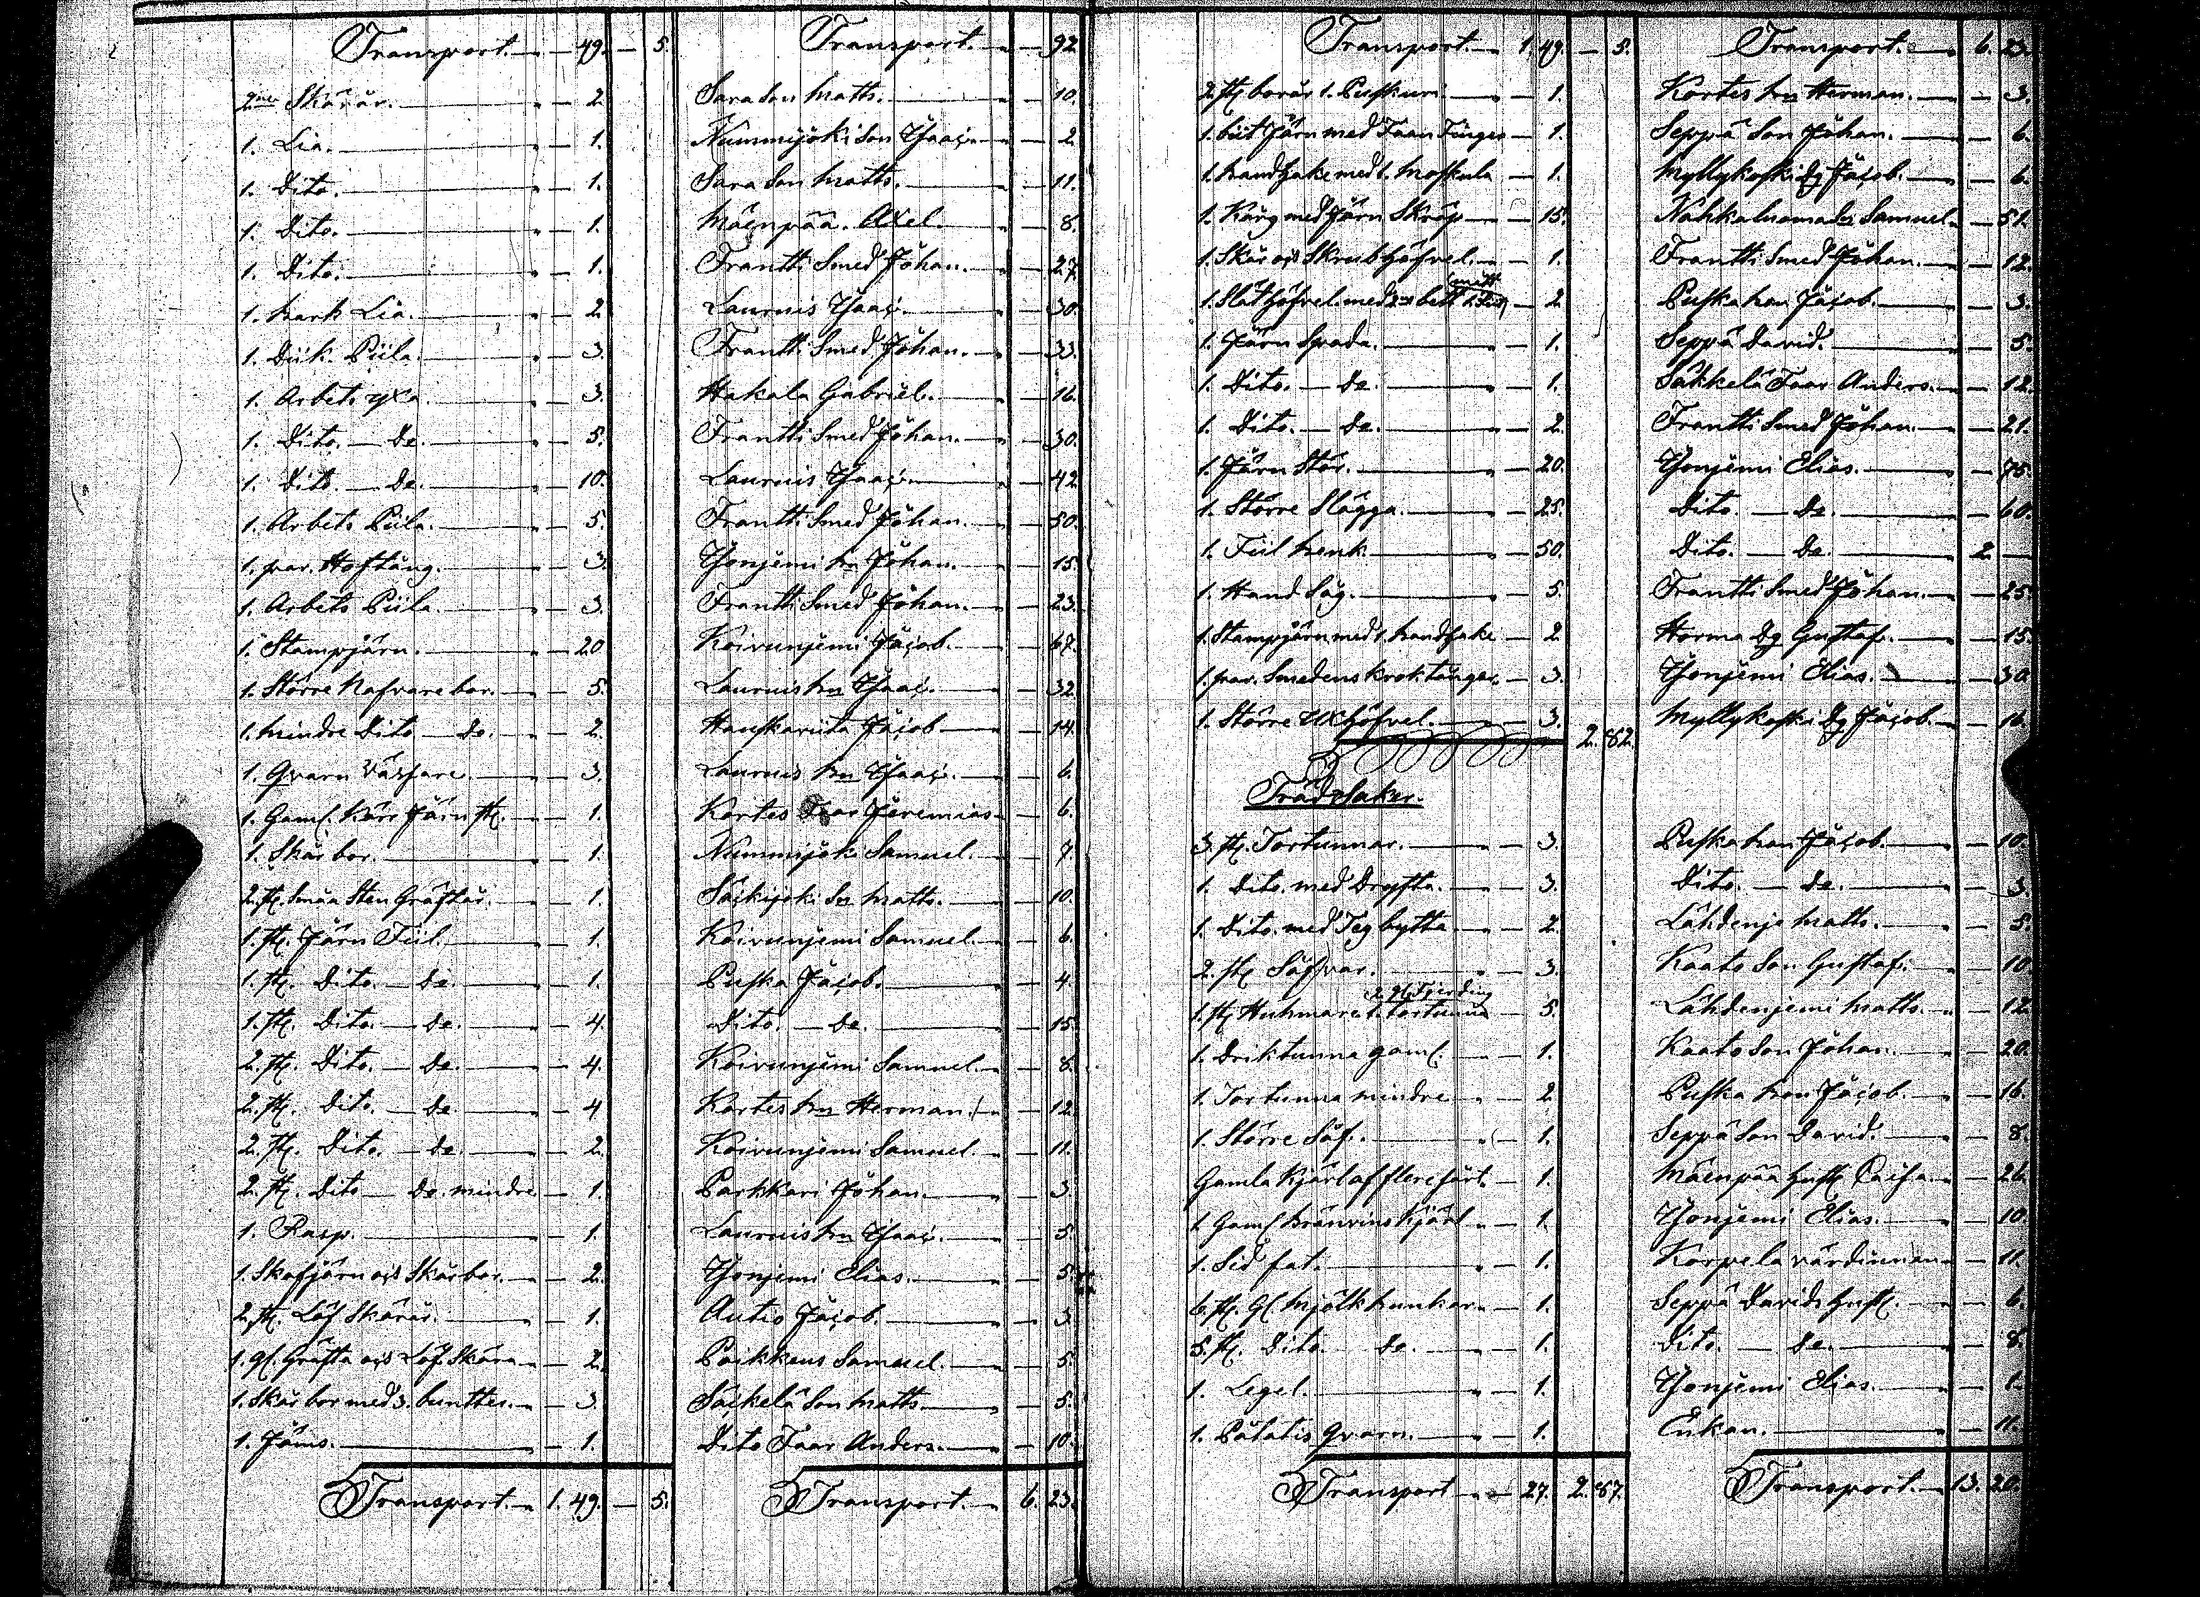 Transport. 49. 5. Transport. 92
2ne Skäror. 2. Sara Son Matts. 10.
1. Lia. 1. Nummijoki Son Isaac. 2
1. Dito. 1. Sara Son Matts. 11.
1. Dito. 1. Mäenpää. Axel. 8.
1. Dito. 1. Frantti Smed Johan. 27.
1. Lia. 2 Laurus Isaac. 30.
1. Diik Piila. 3. Frantti Smed Johan. 33.
1. Arbets yxa. 3. Hakala Gabriel. 16.
1. Dito. De. 5. Frantti Smed Johan. 30.
1. Dito. De. 10. Laurus Isaac. 42
1. Arbets Piila. 5. Frantti Smed Johan. 50.
1. par. Hoftång. 3. Johan. 15.
1. Arbets Piila. 3. Frantti Smed Johan. 23.
1. Stampjärn. 20 Koivunjemi Jacob. 67.
1. Större Nafvare bor. 5. Isaac. 32
1. Mindre Dito De. 2. Jacob 14.
1. Qvarn 3. Isaac. 6.
1. Gaml. Järn st. 1. Kortes Jeremias 6.
1. Skär bor. 1. Nummijoki Samuel. 7.
2. st. Små Sten Gräftar. 1. Säkijoki Sn Matts. 10.
1. st. Järn Fiil. 1. Koivunjemi Samuel. 6.
1. st. Dito. De. 1. Puska Jacob. 4.
1. st. Dito. De. 4. Dito. De. 15.
2. st. Dito. De. 4. Koivunjemi Samuel. 8.
2. st. Dito. De 4 Kortes Herman. 12.
2. st. Dito. De. 2. Koivunjemi Samuel. 11.
2. st. Dito De. mindre 1. Parkkari Johan. 3
1. Rasp. 1. Isaac. 5.
1. Skafjärn och Skär bor. 2. Elias. 5.
2. st. Löf Skäror. 1. Autio Jacob. 3.
1. gl. Gräfta och Löf Skära 2. Poikkeus Samuel. 5.
1. Skär bor med 3. 3. Säckelä Son Matts 5.
1. 1. Dito Faar Anders. 10.
Transport. 1. 49. 5. Transport. 6. 23.
Transport. 1. 49. 5. Transport. 6. 23.
2. st borar 1. Puskuri 1. Kortes Herman. 3.
1. Järn med 1. Seppä Son Johan. 6.
1. 1. Myllykoski Dg Jacob. 6.
1. Korg med Järn Skrap 15. Samuel. 51.
1. Skär och Skrubhöfvel. 1. Frantti Smed Johan. 12.
1. Slät höfvel. med 2. Puska Jacob. 3.
1. Järn Spada. 1. Seppä David. 5.
1. Dito. De. 1. Säkkelä Faar Anders. 12.
1. Dito. De. 2. Frantti Smed Johan. 21.
1. Järn Stör. 20. Elias. 75.
1. Större Slägga. 25. Dito. De. 60.
1. Fiil 50. Dito. De. 2.
1. Hand Såg. 5. Frantti Smed Johan. 25.
1. Stampjärn med 1. 2. Horma Dg Gustaf. 15.
1. par. Smedens kroktänger. 3. Elias. 30.
1. Större 3. Myllykoski Dg Jacob. 16.
2. 82.
Träd Saker.
3. st. Tortunnor. 3. Puska Jacob. 10.
1. Dito. med Drysta. 3. Dito. De. 3.
1. Dito. med Teg bytta 2. Matts. 5.
2. st Såfvar. 3. Kaato Son Gustaf. 10
1. st Huhmare 1. tortunna 5. Lähdenjemi Matts. 12
1. Driktunna gaml. 1. Kaato Son Johan. 20.
1. Tortunna mindre 2. Puska Jacob. 16.
1. Större Såf. 1. Seppä Son David. 8.
Gamla Kjärl af flere sårt. 1. Mäenpää 26.
1. Gaml. Kjärl 1. Elias. 10.
1. Sed fat. 1. Korpela värdinnan 11.
6. st. gl Mjölk 1. Seppä Davids 6.
5. st. Dito. De. 1. Dito. De. 8.
1. Legel. 1. Elias. 1.
1. Pätatis Qvarn. 1. Enkan. 11.
Transport 27. 2. 87. Transport. 13. 20.